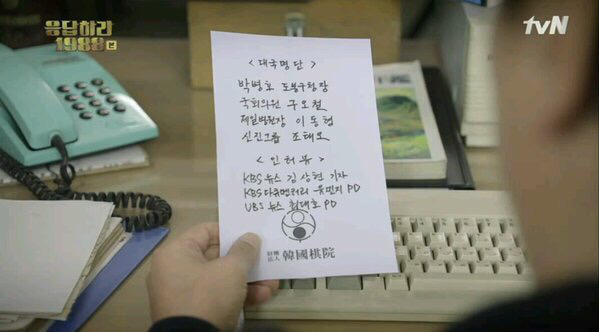 응답하라
1988
tvN
<대국명단>
박병호 도봉구청장
국회의원 구오철
제일병원장 이동협
신진그룹 조태오
<인터뷰>
KBS 뉴스 김상현 기자
KBS 다큐멘터리 유민지 PD
UBS 뉴스 최대호 PD
財團
法人 韓國棋院